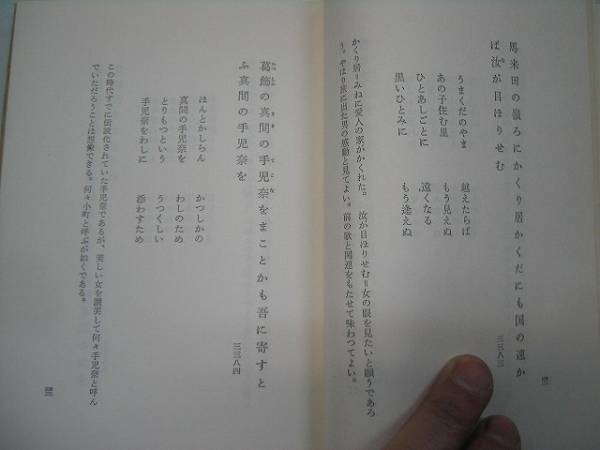 馬来田の嶺ろにかくり居かくだにも国の遠か
ば汝が目ほりせむ
三三八三
うまくだのやま
あの子住む里
ひとあしごとに
黒いひとみに
越えたらば
もう見えぬ
遠くなる
もう逢えぬ
かくり居=みねに愛人の家がかくれた。 汝が目ほりせむ=女の眼を見たいと願うであろ
う。やはり旅に出た男の感動と見てよい。前の歌と関連をもたせて味わつてよい。
葛飾の真間の手児奈をまことかも吾に寄すと
ふ真間の手児奈を
三三八四
ほんとかしらん
真間の手児奈を
とりもつという
手児奈をわしに
かつしかの
わしのため
うつくしい
添わすため
この時代すでに伝説化されていた手児奈であるが、美しい女を讃美して何々手児奈と呼ん
でいただろうことは想像できる。何々小町と呼ぶが如くである。